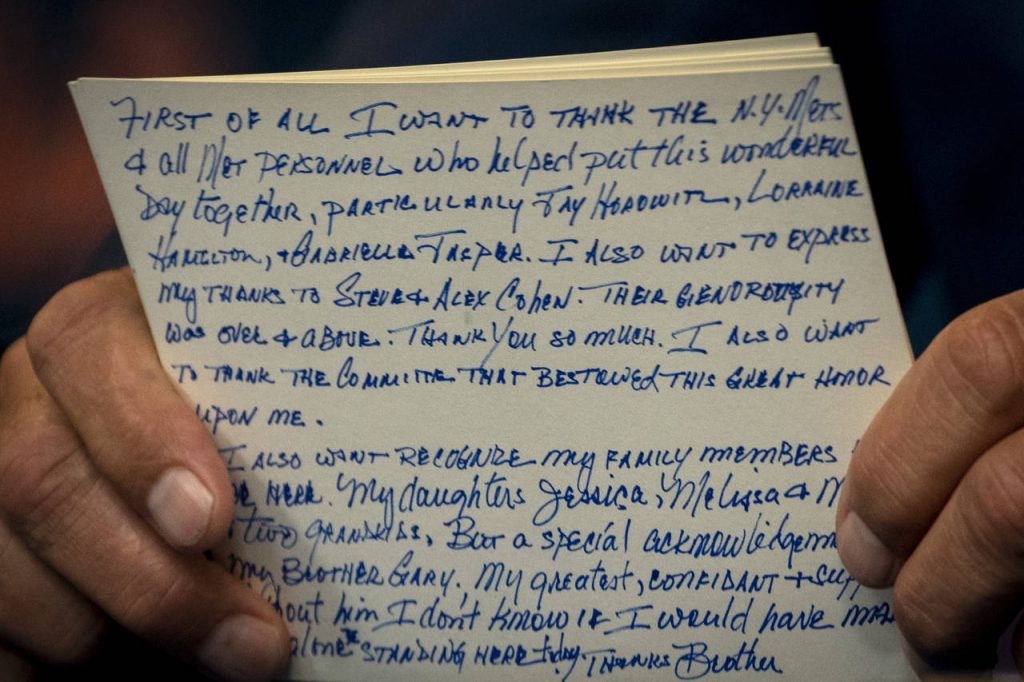 FIRST OF ALL I WANT TO THINK THE N.Y. Mets
& all Met PERSONNEL who helped put this wonderFUL
Day together, PARTICULARLY JAY HOROWITZ, LORRAINE
HAMILTON, & GABRIELLE JASPER. I ALSO WANT TO EXPRESS
my THANKS TO STEVE & ALEX COHEN. THEIR
WAS OVER & ABOVE. THANK YOU SO MUCH. I ALSO WANT
TO THANK THE COMMITTE THAT BESTOWED THIS GREAT HONOR
UPON ME.
I ALSO WANT RECOGNIZE my FAMILY MEMBERS
HERE. My daughters Jessica, Melissa & M
two GRANDKIDS, But a special acknowledgem
my BROTHER GARY, My greatest, CONFIDANT + SUPP
him I don't know IF I would have ma
STANDING HERE today. THANKS Brother